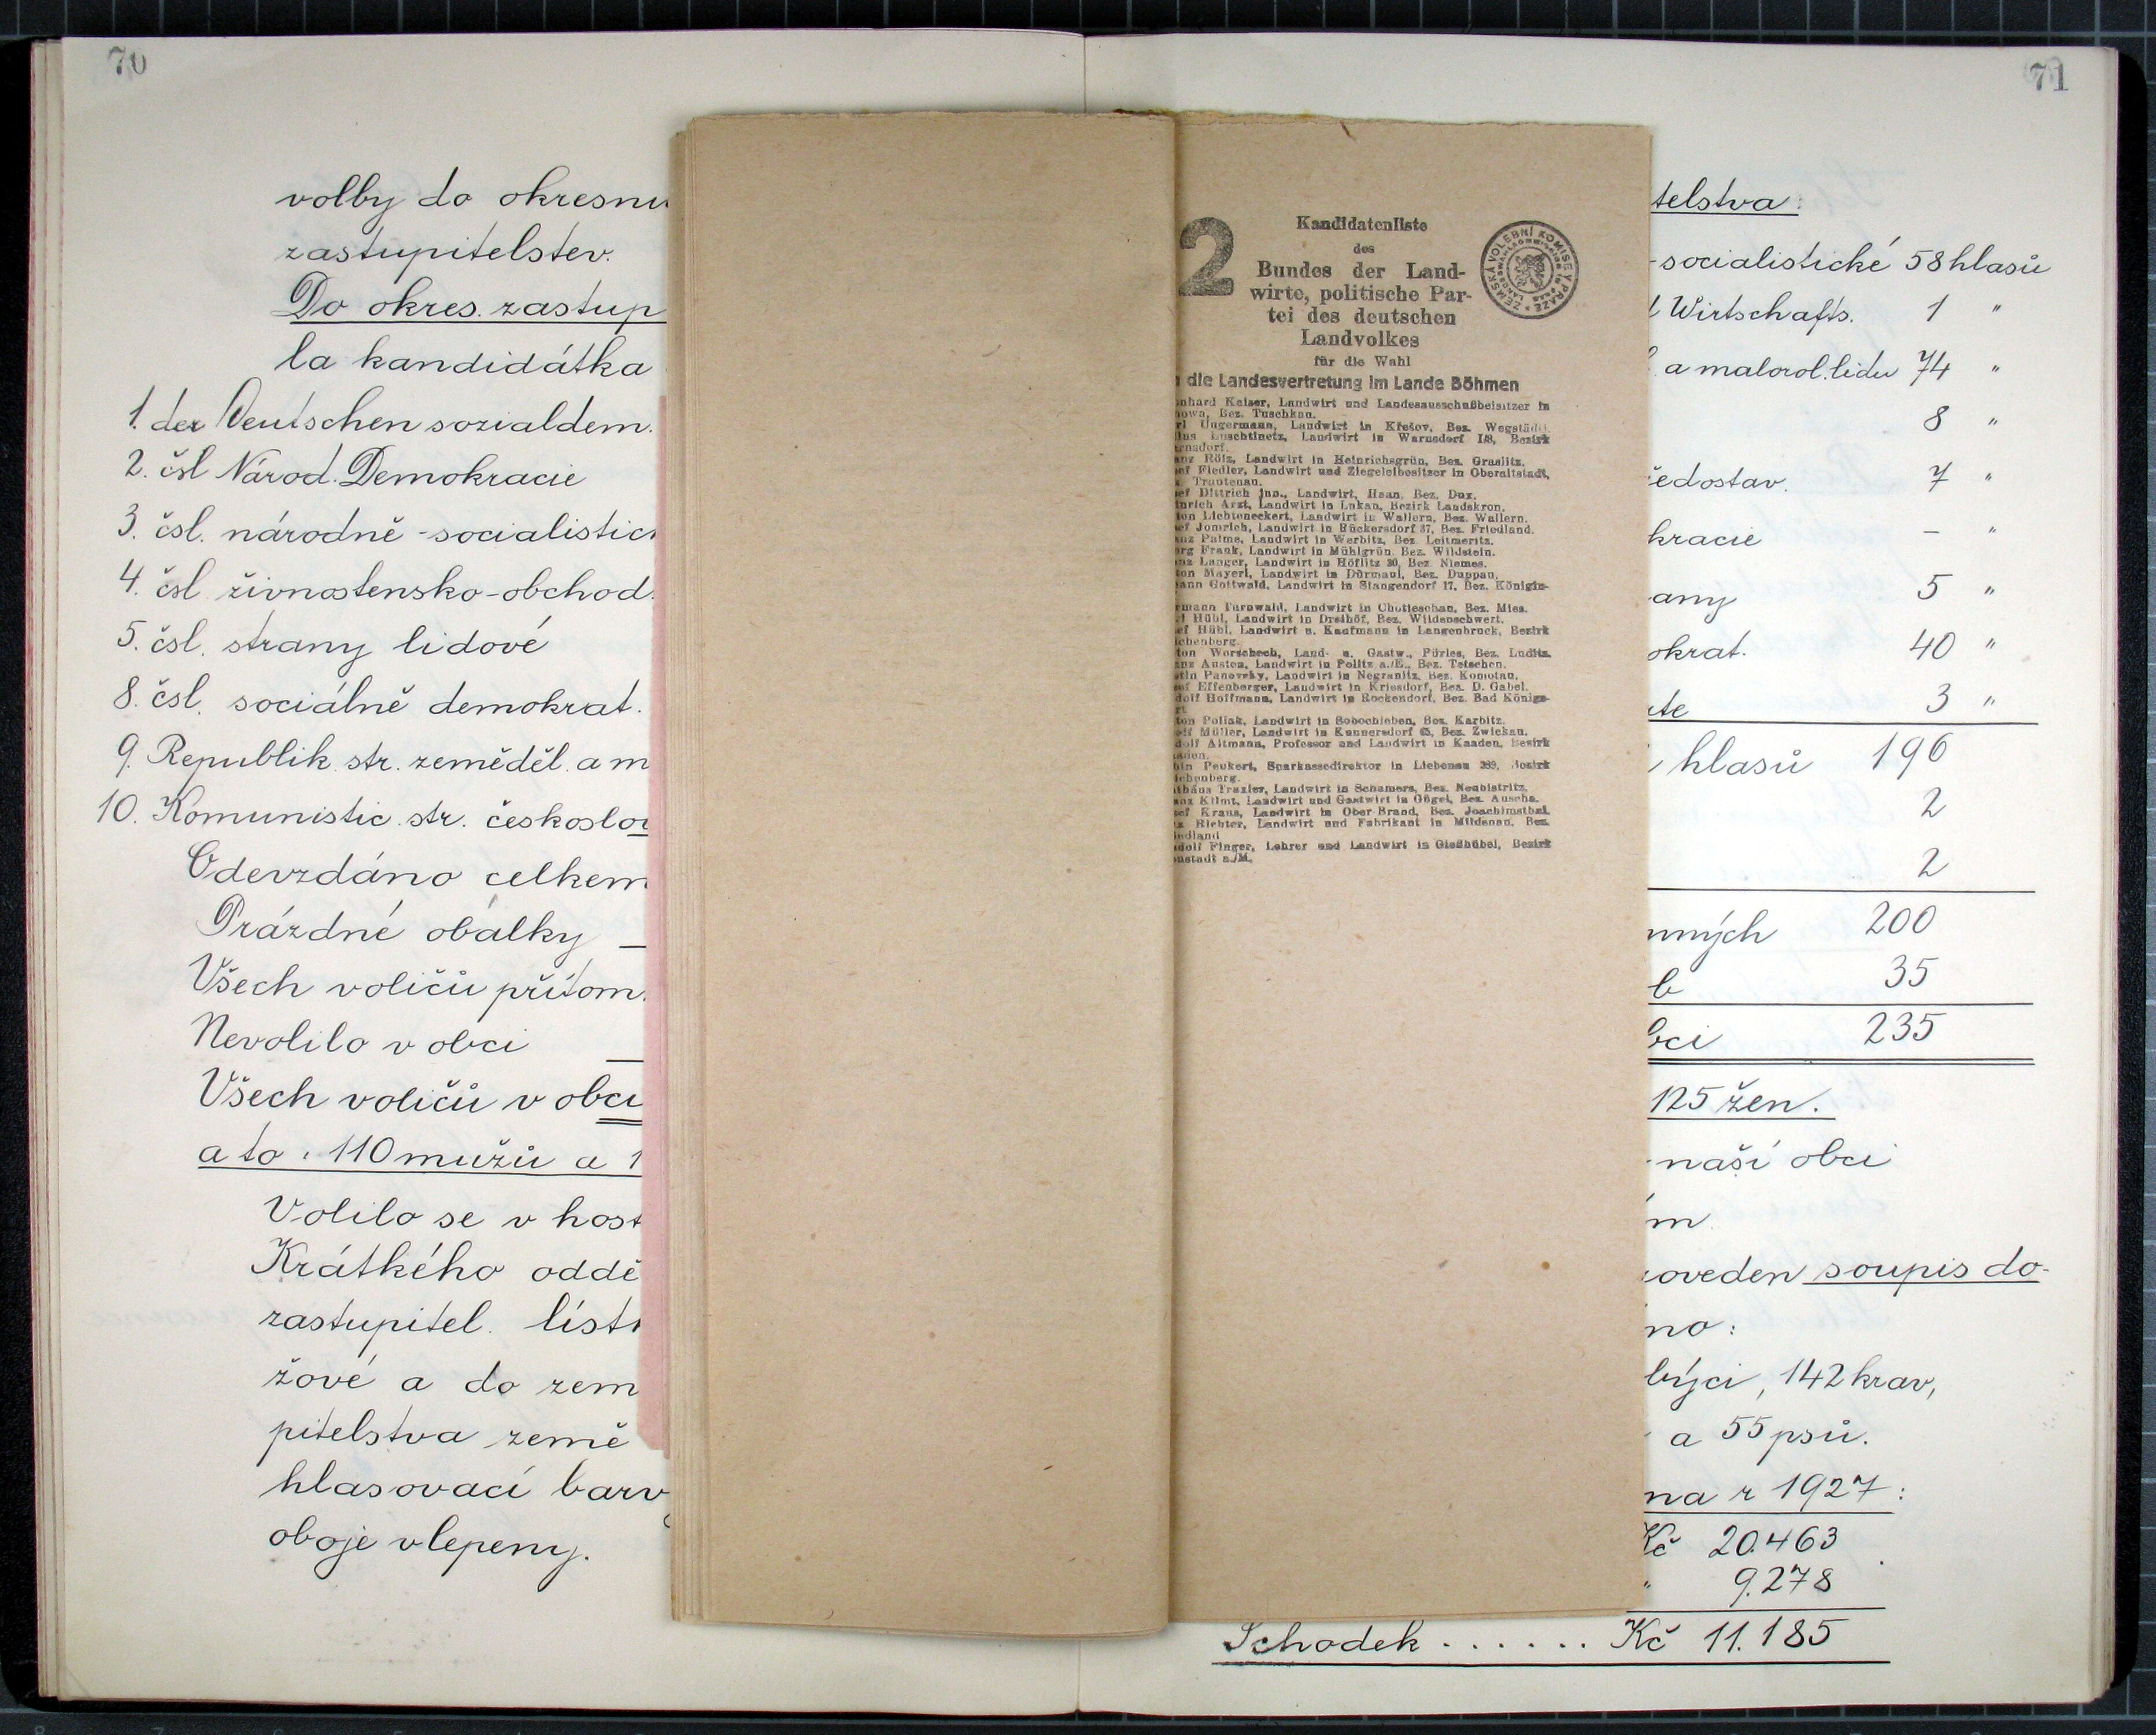 70
volby do okresn
zastupitelstev.
Do okres. zastup
la kandidátka
1. der Deutschen sozialdem.
2. čsl Národ. Demokracie
3. čsl. národně-socialistic
4. čsl. živnostensko-obchod.
5. čsl. strany lidové
8. čsl. sociálně demokrat.
9. Republik. str. zeměděl. a m
10. Komunistic. str. českoslo
Odevzdáno celkem
Prázdné obálky —
Všech voličů přítom.
Nevolilo v obci
Všech voličů v obci
a to: 110 mužů a 1
Volilo se v host
Krátkého oddě
zastupitel. líst
žové a do zem
pitelstva země
hlasovací barv
oboje vlepeny.
2
Kandidatenliste
des
Bundes der Land-
wirte, politische Par-
tei des deutschen
Landvolkes
für die Wahl
die Landesvertretung im Lande Böhmen
ZEMSKÁ VOLEBNÍ KOMISE V PRAZE
nhard Kaiser, Landwirt und Landesausschußbeisitzer in
owa, Bez. Tuschkau.
rl Ungermann, Landwirt in Křešov, Bez. Wegstädtl.
lius Luschtinetz, Landwirt in Warnsdorf I/8, Bezirk
rnsdorf.
anz Rölz, Landwirt in Heinrichsgrün, Bez. Graslitz.
ef Fiedler, Landwirt und Ziegeleibesitzer in Oberaltstadt,
Trautenau.
ef Dittrich jun., Landwirt, Haan, Bez. Dux.
inrich Arzt, Landwirt in Lukau, Bezirk Landskron.
ton Lichteneckert, Landwirt in Wallern, Bez. Wallern.
ef Jomrich, Landwirt in Rückersdorf 37, Bez. Friedland.
anz Palme, Landwirt in Werbitz, Bez. Leitmeritz.
org Frank, Landwirt in Mühlgrün, Bez. Wildstein.
anz Langer, Landwirt in Höflitz 30, Bez. Niemes.
ton Mayerl, Landwirt in Dürmaul, Bez. Duppau.
ann Gottwald, Landwirt in Stangendorf 17, Bez. Königin-
rmann Turnwald, Landwirt in Chotieschau, Bez. Mies.
ef Hübl, Landwirt in Dreihöf, Bez. Wildenschwert.
ef Hübl, Landwirt u. Kaufmann in Langenbruck, Bezirk
ichenberg.
ton Worschech, Land- u. Gastw., Pürles, Bez. Luditz.
anz Austen, Landwirt in Politz a./E., Bez. Tetschen.
stin Panovsky, Landwirt in Negranitz, Bez. Komotau.
ef Effenberger, Landwirt in Kriesdorf, Bez. D. Gabel.
dolf Hoffmann, Landwirt in Rockendorf, Bez. Bad Königs-
rt
ton Pollak, Landwirt in Sobochleben, Bez. Karbitz.
olf Müller, Landwirt in Kunnersdorf 65, Bez. Zwickau.
dolf Altmann, Professor und Landwirt in Kaaden, Bezirk
aden.
bin Peukert, Sparkassedirektor in Liebenau 289, Bezirk
ichenberg.
thäus Traxler, Landwirt in Schamers, Bez. Neubistritz.
anz Klimt, Landwirt und Gastwirt in Gügel, Bez. Auscha.
sef Kraus, Landwirt in Ober-Brand, Bez. Joachimsthal.
Richter, Landwirt und Fabrikant in Mildenau, Bez.
iedland
dolf Finger, Lehrer und Landwirt in Gießhübel, Bezirk
ustadt a./M.
71
telstva:
-socialistické 58 hlasů
Wirtschafts. 1 "
a malorol. lidu 74 "
8 "
ředostav. 7 "
kracie – "
any 5 "
okrat. 40 "
rte 3 "
hlasů 196
2
2
mných 200
b 35
bci 235
125 žen.
naší obci
m
roveden soupis do-
no:
býci, 142 krav,
a 55 psů.
na r 1927:
Kč 20.463
" 9.278
Schodek . . . . . . Kč 11.185